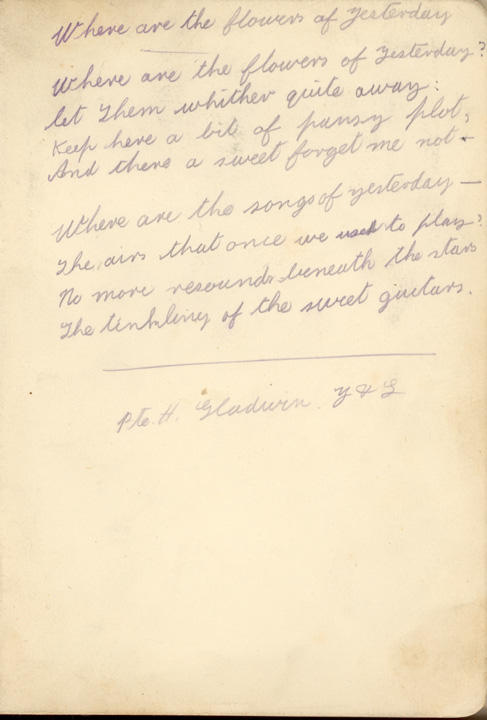 Where are the flowers of Yesterday
Where are the flowers of Yesterday?
let Them whither quite away:
Keep here a bit of pansy plot,
And there a sweet forget me not –
Where are the songs of yesterday –
The airs that once we used to play?
No more resounds beneath the stars
The tinkling of the sweet guitars.
Pte. H. Gladwin. Y & L